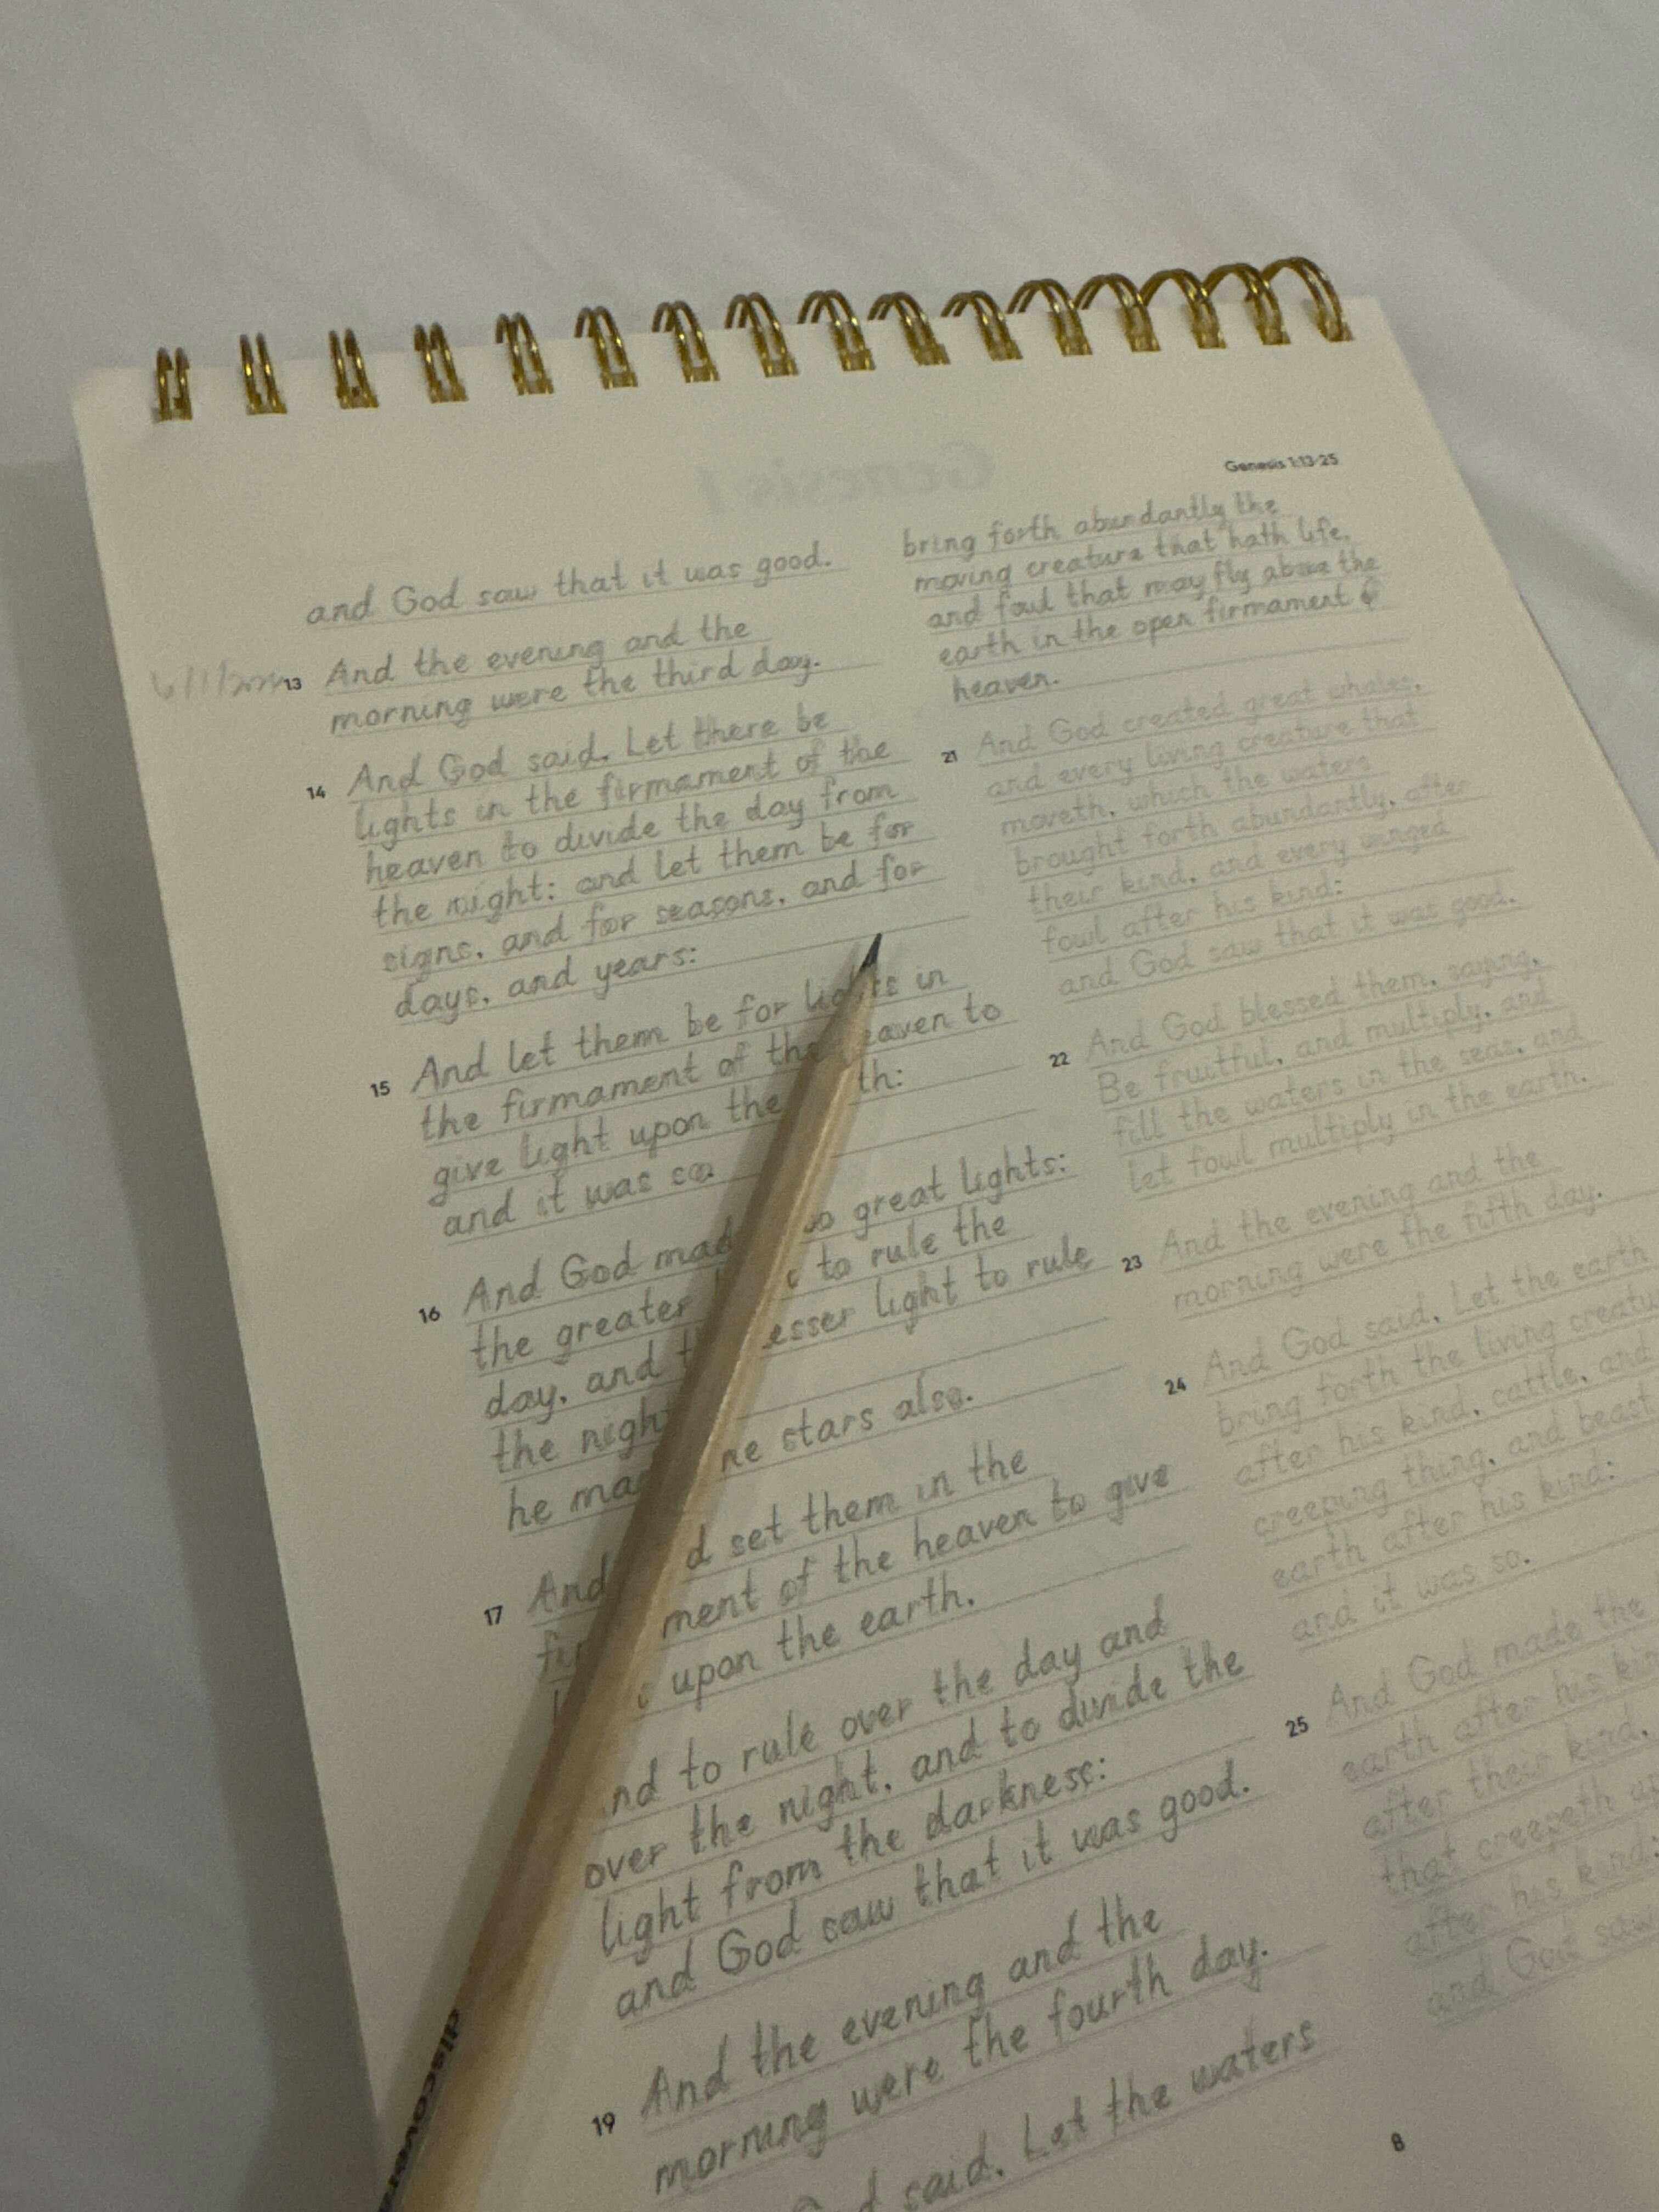 Genesis 1:13-25
and God saw that it was good.
13 And the evening and the
morning were the third day.
14 And God said, Let there be
lights in the firmament of the
heaven to divide the day from
the night: and let them be for
signs, and for seasons, and for
days, and years:
15 And let them be for lights in
the firmament of the heaven to
give light upon the th:
and it was so.
16 And God mad o great lights:
the greater to rule the
day, and t esser light to rule
the nigh
he ma he stars also.
17 And d set them in the
fi ment of the heaven to give
upon the earth.
nd to rule over the day and
over the night, and to divide the
light from the darkness:
and God saw that it was good.
19 And the evening and the
morning were the fourth day.
d said, Let the waters
bring forth abundantly the
moving creature that hath life,
and fowl that may fly above the
earth in the open firmament
heaven.
21 And God created great whales,
and every living creature that
moveth, which the waters
brought forth abundantly, after
their kind, and every winged
fowl after his kind:
and God saw that it was good.
22 And God blessed them, saying,
Be fruitful, and multiply, and
fill the waters in the seas, and
let fowl multiply in the earth.
23 And the evening and the
morning were the fifth day.
24 And God said, Let the earth
bring forth the living creatu
after his kind, cattle, and
creeping thing, and beast
earth after his kind:
and it was so.
25 And God made the
earth after his kin
after their kind,
that creepeth up
after his kind:
and God saw
8
discover